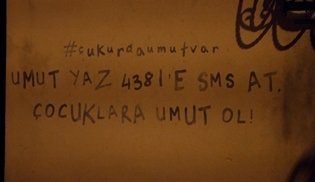 #çukurdaumutvar
UMUT YAZ 4381'E SMS AT.
ÇOCUKLARA UMUT OL!